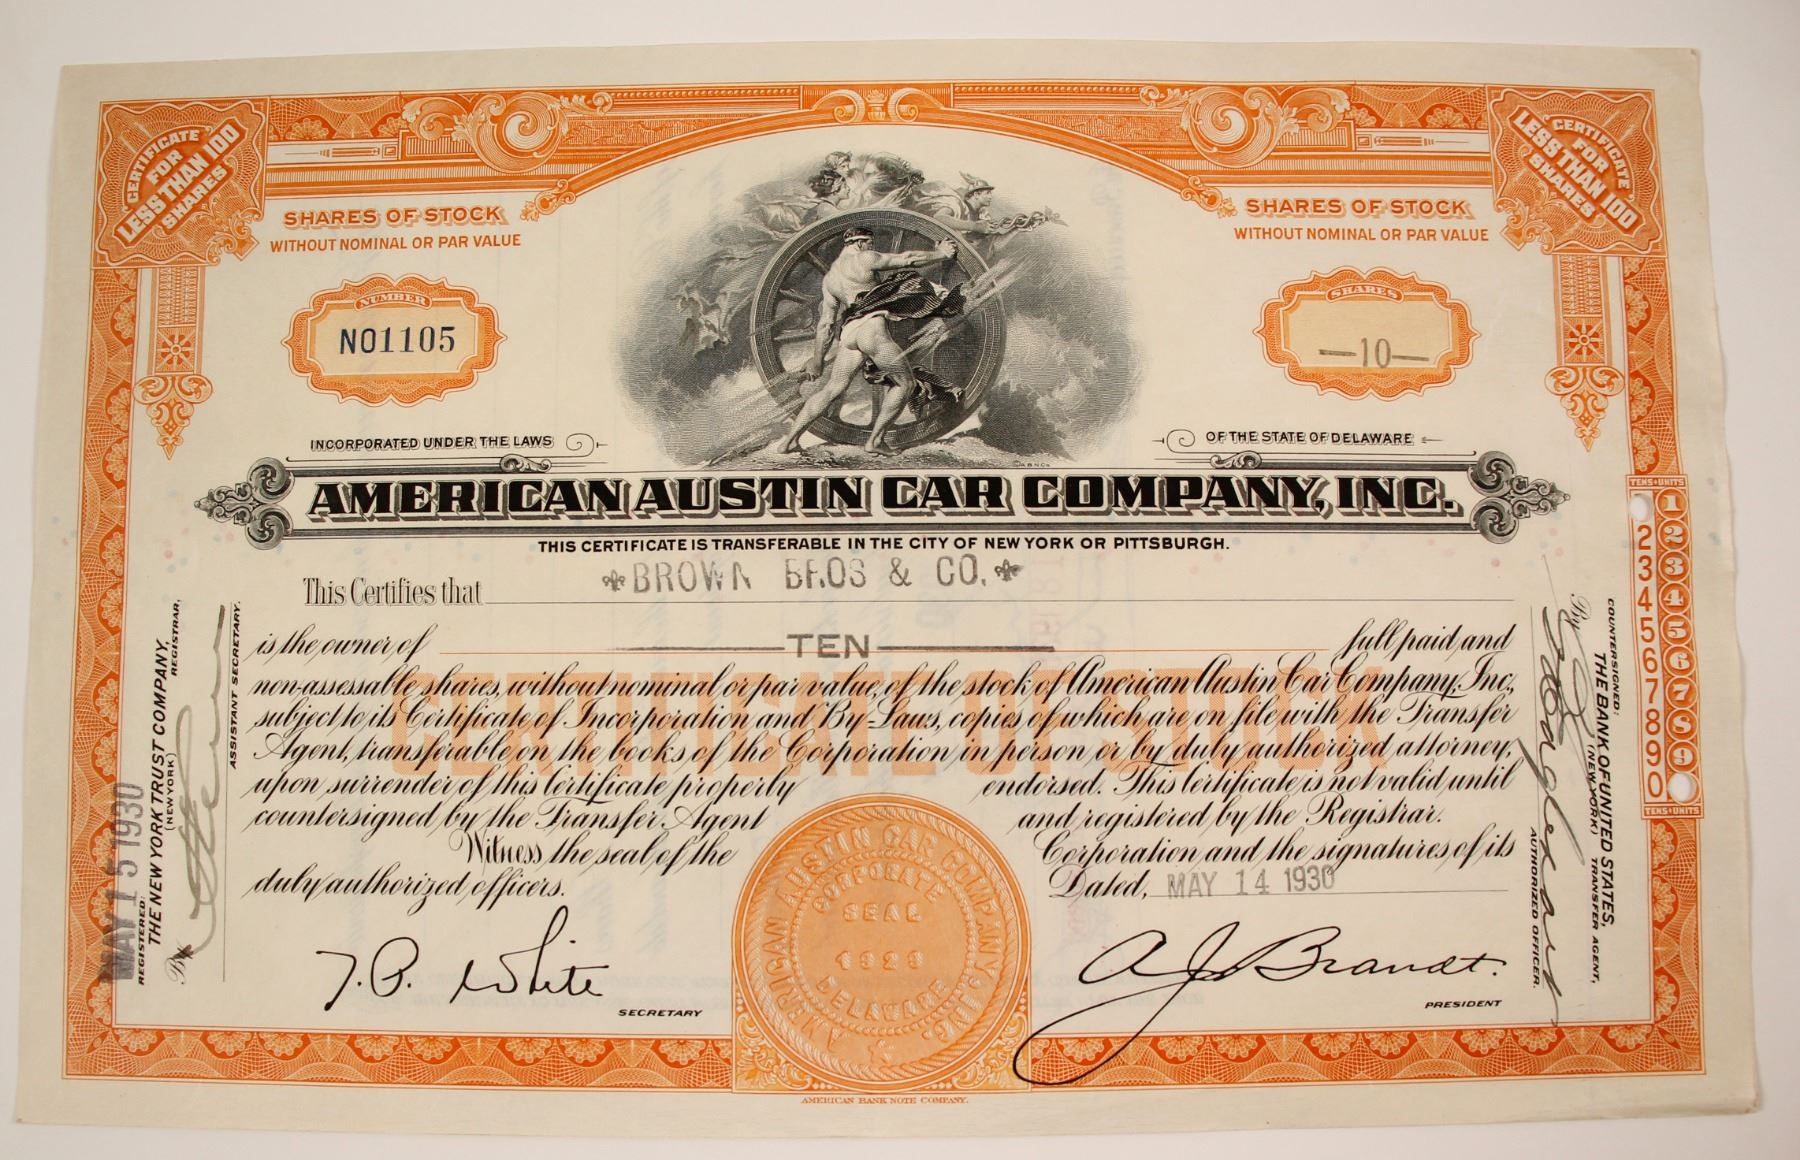 CERTIFICATE
FOR
LESS THAN 100
SHARES
CERTIFICATE
FOR
LESS THAN 100
SHARES
SHARES OF STOCK
WITHOUT NOMINAL OR PAR VALUE
SHARES OF STOCK
WITHOUT NOMINAL OR PAR VALUE
NUMBER
NO1105
SHARES
—10—
INCORPORATED UNDER THE LAWS
OF THE STATE OF DELAWARE
A.B.N.Co.
AMERICAN AUSTIN CAR COMPANY, INC.
THIS CERTIFICATE IS TRANSFERABLE IN THE CITY OF NEW YORK OR PITTSBURGH.
This Certifies that BROWN BROS & CO.
is the owner of TEN full paid and
non-assessable shares, without nominal or par value, of the stock of American Austin Car Company, Inc.,
subject to its Certificate of Incorporation and By-Laws, copies of which are on file with the Transfer
Agent, transferable on the books of the Corporation in person or by duly authorized attorney,
upon surrender of this Certificate properly endorsed. This Certificate is not valid until
countersigned by the Transfer Agent and registered by the Registrar.
Witness the seal of the Corporation and the signatures of its
duly authorized officers. Dated, MAY 14 1930
CERTIFICATE OF STOCK
T. P. White
SECRETARY
A J Brandt.
PRESIDENT
AMERICAN AUSTIN CAR COMPANY, INC.
CORPORATE
SEAL
1929
DELAWARE
AMERICAN BANK NOTE COMPANY.
MAY 15 1930
REGISTERED:
THE NEW YORK TRUST COMPANY,
(NEW YORK) REGISTRAR,
By
ASSISTANT SECRETARY.
COUNTERSIGNED:
THE BANK OF UNITED STATES,
(NEW YORK) TRANSFER AGENT,
By
AUTHORIZED OFFICER.
TENS+UNITS
1
2 2
3 3
4 4
5 5
6 6
7 7
8 8
9 9
0
TENS+UNITS